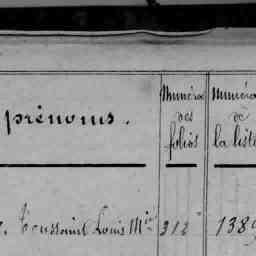 prénoms.
Numéro
des
folios
Numéro
de
la liste
Toussaint Louis Mie
312
1389